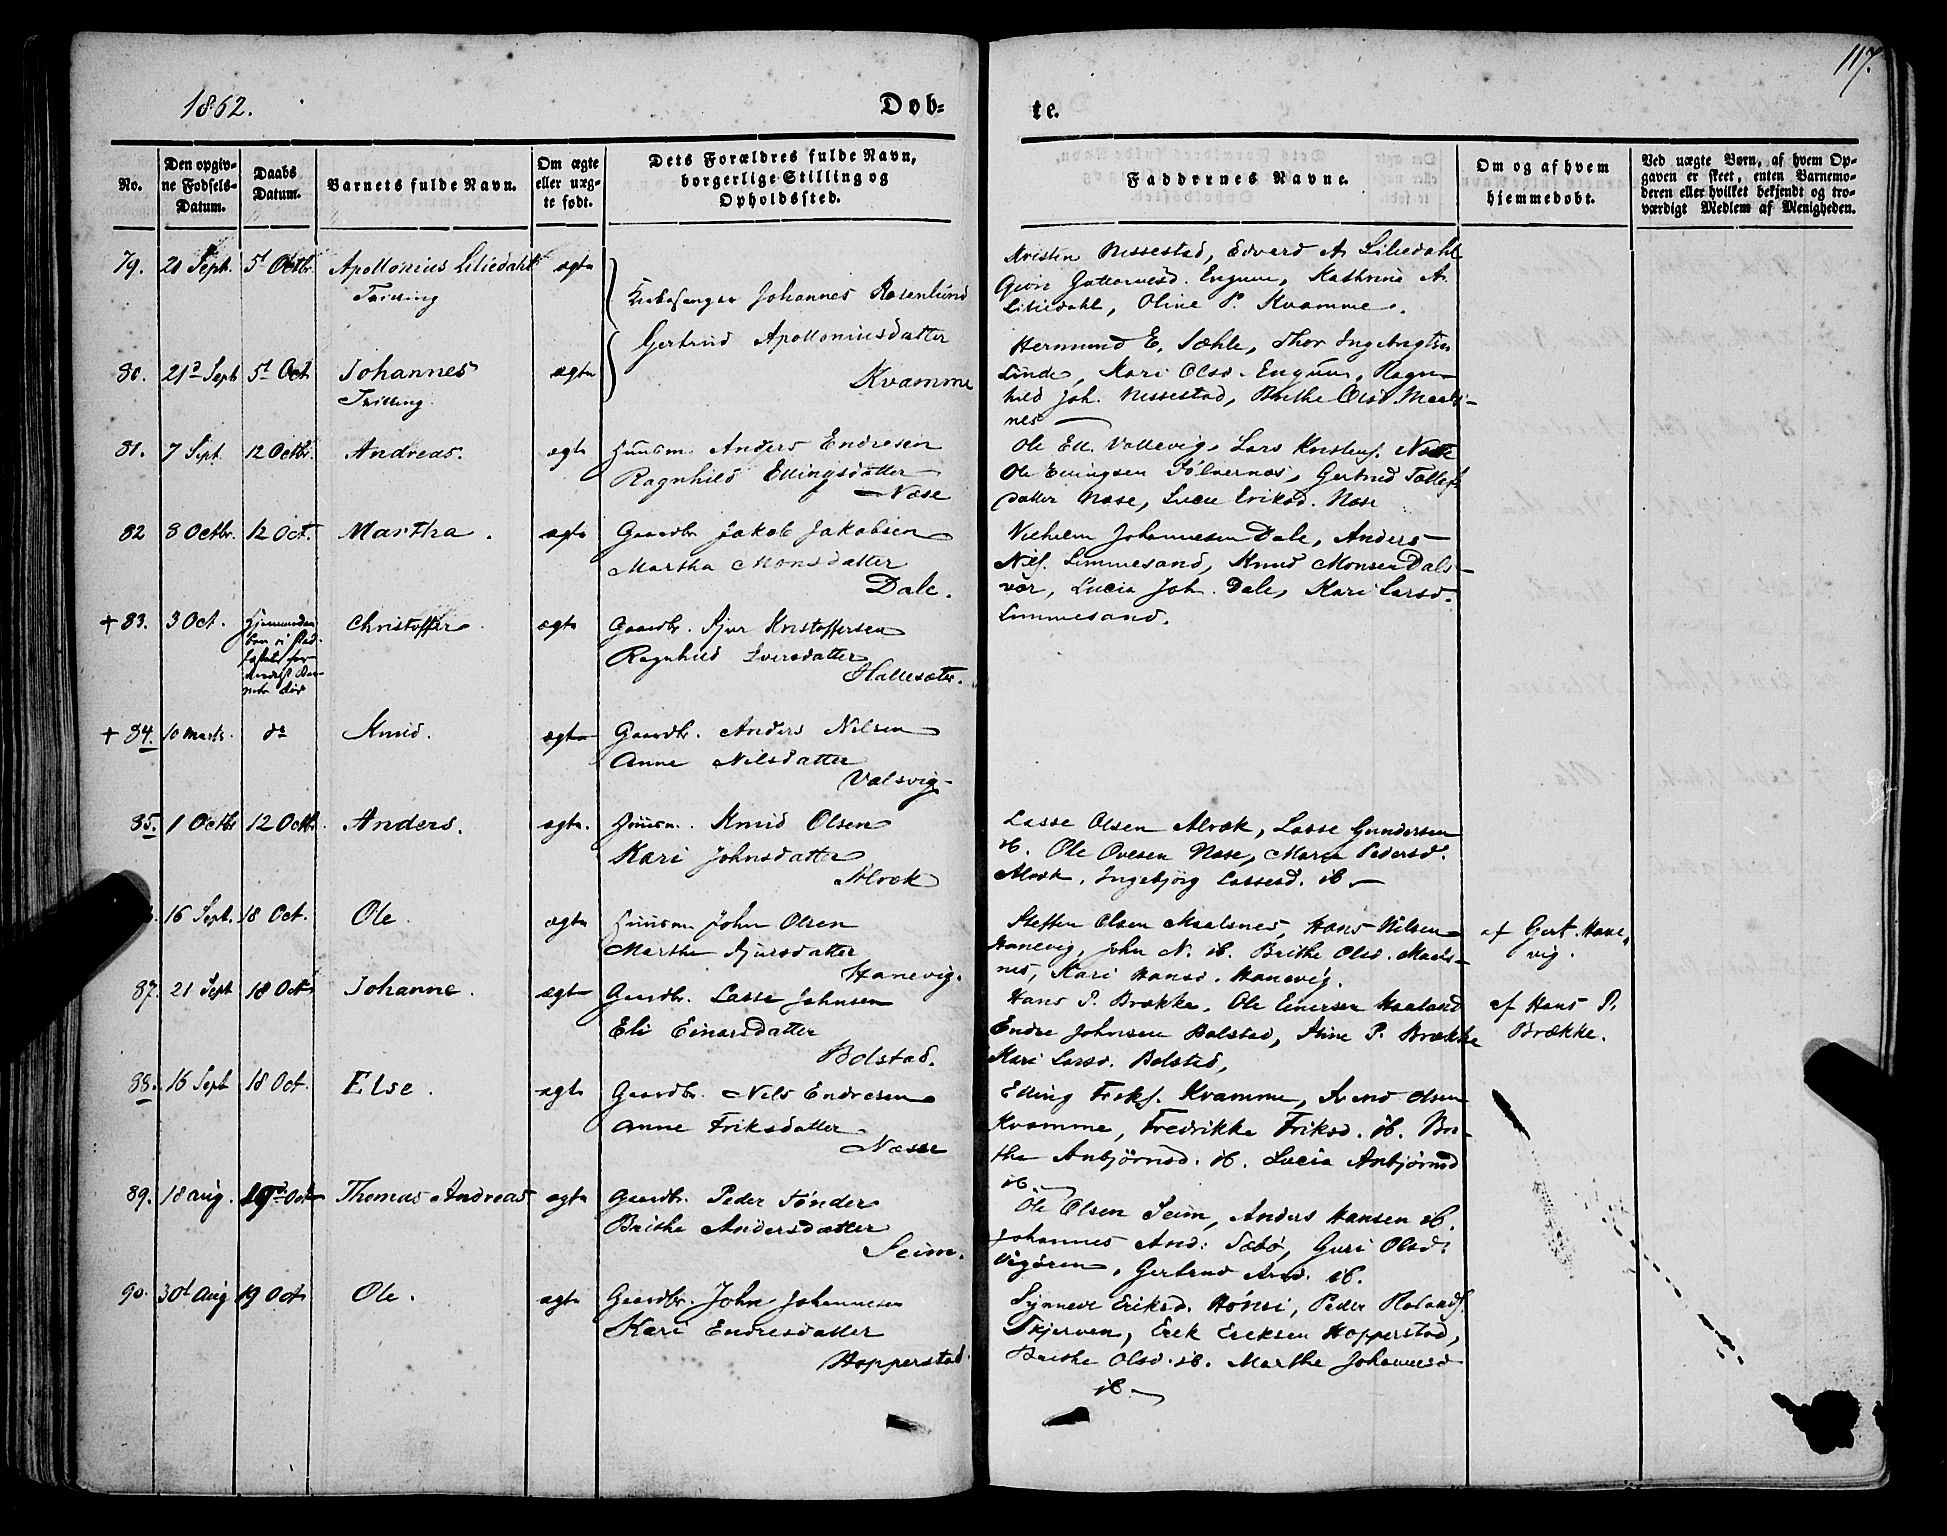 117.
1862.
Døb-
te.
No.
Den opgiv-
ne Fødsels-
Datum.
Daabs
Datum.
Barnets fulde Navn.
Om ægte
eller uæg-
te født.
Dets Forældres fulde Navn,
borgerlige Stilling og
Opholdssted.
Faddrenes Navne.
Om og af hvem
hjemmedøbt.
Ved uægte Børn, af hvem Op-
gaven er skeet, enten Barnemo-
deren eller hvilket bekjendt og tro-
værdigt Medlem af Menigheden.
79. 21 Sept. 5t Octbr. Apollonius Liliedahl ægte
Tvilling
Kirkesanger Johannes Rosenlund
Gertrud Apolloniusdatter
Kvamme
Kristen Nissestad, Edvard A. Liliedahl
Engum, Kathrine A.
Liliedahl, Oline P. Kvamme.
80. 21d Sept. 5t Oct. Johannes ægte
Tvilling
Hermund E. Sæhle, Thor Ingebrigtsen
Linde, Kari Olsd. Engum, Ragn-
hild Joh. Nissestad, Brithe Olsd. Maals-
nes
81. 7 Sept. 12 Octbr. Andreas. ægte
Huusm. Anders Endresen
Ragnhild Ellingsdatter
Næse
Ole Ell. Vallevig, Lars Kristens. Næse
Ole Ellingsen Sølvernæs, Gertrud Tollefs
datter Næse, Lucie Eriksd. Næse
82 8 Octbr. 12 Oct. Martha. ægte
Gaardbr. Jakob Jakobsen
Martha Monsdatter
Dale.
Vilhelm Johannesen Dale, Anders
Nils. Limmesand, Knud Monsen Dals-
vær, Lucia Joh. Dale, Kari Larsd.
Limmesand.
+ 83. 3 Oct. Christoffer. ægte
Gaardbr. Sjur Kristoffersen
Ragnhild Iversdatter
Hallesæter.
+ 84. 10 Marts. do Knud. ægte
Gaardbr. Anders Nilsen
Anne Nilsdatter
Valsvig
85. 1 Octbr 12 Octbr. Anders. ægte.
Huusm. Knud Olsen
Kari Johnsdatter
Alræk
Lasse Olsen Alræk, Lasse Gundersen
ib. Ole Ovesen Næse, Maria Pedersd.
Alræk, Ingebjörg Lassesd. ib
16 Sept. 18 Oct. Ole. ægte
Huusm. John Olsen
Marthe Sjursdatter
Hanevig.
Steffen Olsen Maalsnes, Hans Nilsen
Hanevig, John N. ib. Brithe Olsd. Maals-
nes, Kari Hansd. Hanevig.
af Gert. Hane-
vig.
87. 21 Sept 18 Oct. Johanne. ægte
Gaardbr. Lasse Johnsen
Eli Einarsdatter
Bolstad.
Hans P. Brække, Ole Einersen Haaland
Endre Johnsen Bolstad, Stine P. Brække
Kari Larsd. Bolstad,
af Hans P.
Brække.
88. 16 Sept 18 Oct. Else. ægte
Gaardbr. Nils Endresen
Anne Eriksdatter
Næsse
Elling Eriks. Kvamme, Svend Olsen
Kvamme, Fredrikke Eriksd. ib. Bri-
the Anbjörnsd. ib. Lucia Anbjörnsd
ib.
89. 18 Aug. 19de Oct Thomas Andreas ægte
Gaardbr. Peder Tønder
Brithe Andersdatter
Seim.
Ole Olsen Seim, Anders Hansen ib.
Johannes And: Sæbø, Guri Olsd:
Vigören, Gertrud And. ib.
90. 30t Aug 19 Oct Ole. ægte
Gaardbr. John Johannesen
Kari Endresdatter
Hopperstad.
Synneve Eriksd. Hønsi, Peder
Skjerven, Erik Eriksen Hopperstad,
Brithe Olsd. ib. Marthe Johannesd
ib.